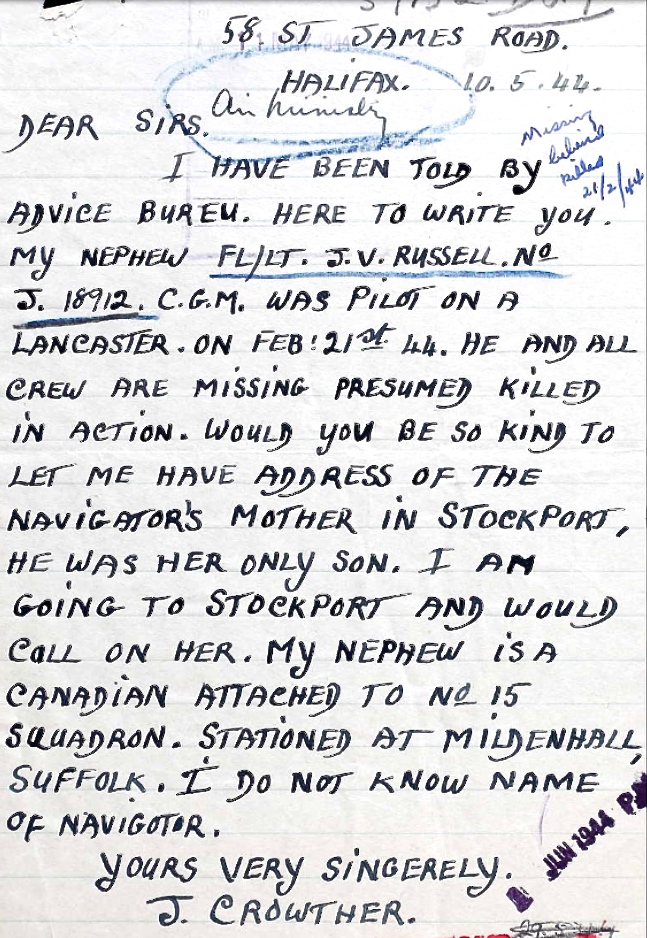 58 ST JAMES ROAD.
HALIFAX. 10.5.44.
Air Ministry
DEAR SIRS.
Missing
believed
killed
21/2/44
I HAVE BEEN TOLD BY
ADVICE BUREU. HERE TO WRITE YOU.
MY NEPHEW FL/LT. J.V. RUSSELL. No
J. 18912. C.G.M. WAS PILOT ON A
LANCASTER. ON FEB: 21st 44. HE AND ALL
CREW ARE MISSING PRESUMED KILLED
IN ACTION. WOULD YOU BE SO KIND TO
LET ME HAVE ADDRESS OF THE
NAVIGATOR'S MOTHER IN STOCKPORT,
HE WAS HER ONLY SON. I AM
GOING TO STOCKPORT AND WOULD
CALL ON HER. MY NEPHEW IS A
CANADIAN ATTACHED TO No 15
SQUADRON. STATIONED AT MILDENHALL,
SUFFOLK. I DO NOT KNOW NAME
OF NAVIGOTOR.
YOURS VERY SINGERELY.
J. CROWTHER.
JUN 1944